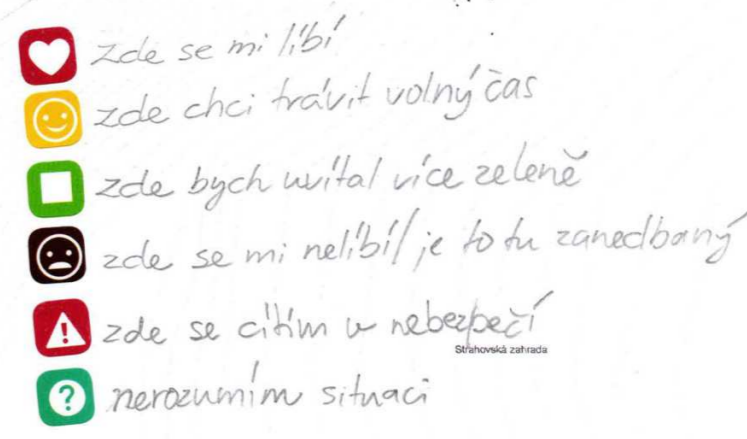 zde se mi líbí
zde chci trávit volný čas
zde bych uvítal více zeleně
zde se mi nelíbí/je to tu zanedbaný
zde se cítím v nebezpečí
Strahovská zahrada
nerozumím situaci